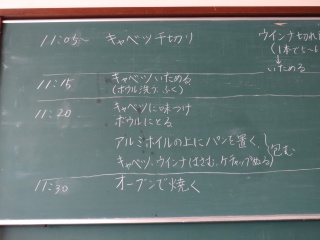 11:05〜 キャベツ千切り
ウインナ切れ
(1本で5〜6
↓
いためる
11:15 キャベツいためる
(ボウル洗う、ふく)
11:20 キャベツに味つけ
ボウルにとる
アルミホイルの上にパンを置く、
キャベツ、ウインナはさむ、ケチャップぬる
包む
11:30 オーブンで焼く